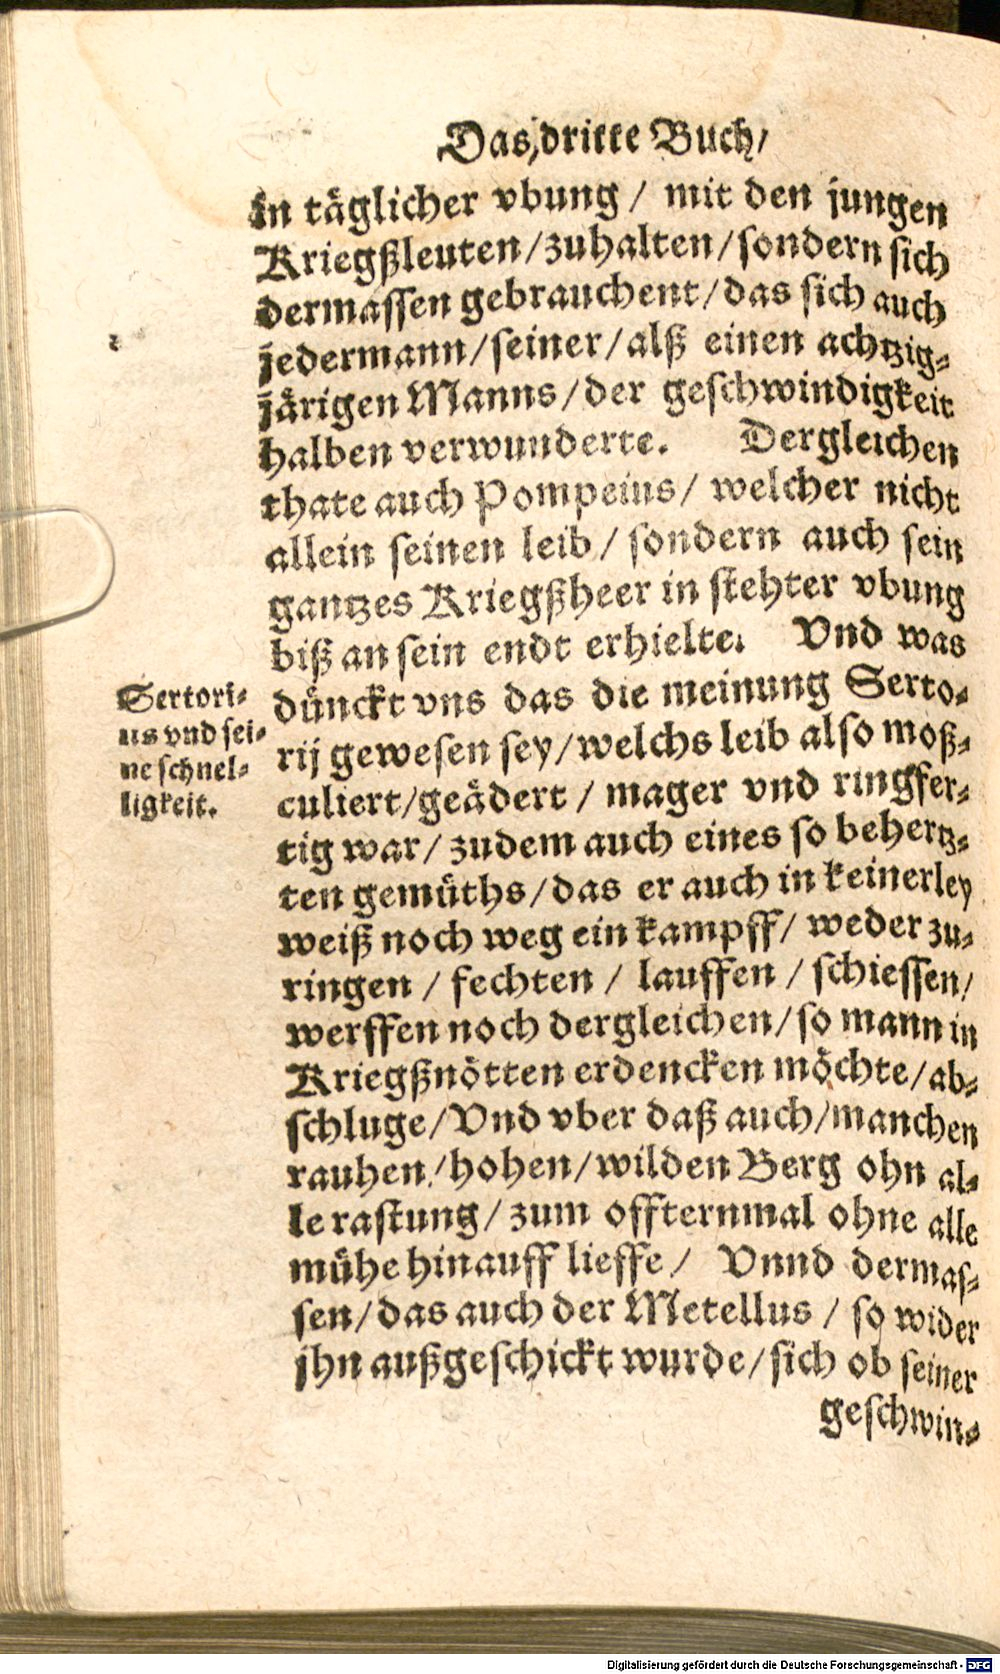 Das dritte Buch/
in täglicher vbung / mit den jungen
Kriegßleuten/zuhalten/sondern sich
dermassen gebrauchent/das sich auch
jedermann/seiner/alß einen achtzig-
järigen Manns/der geschwindigkeit
halben verwunderte. Dergleichen
thate auch Pompeius/ welcher nicht
allein seinen leib/ sondern auch sein
gantzes Kriegßheer in stehter vbung
biß an sein endt erhielte. Vnd was
dünckt vns das die meinung Serto-
rij gewesen sey/welchs leib also moß-
culiert/geädert / mager vnd ringfer-
tig war/ zudem auch eines so behertz-
ten gemüths/das er auch in keinerley
weiß noch weg ein kampff/ weder zu-
ringen / fechten / lauffen / schiessen/
werffen noch dergleichen/so mann in
Kriegßnötten erdencken möchte/ab-
schluge/Vnd vber daß auch/manchen
rauhen/hohen/wilden Berg ohn al-
le rastung/ zum offternmal ohne alle
mühe hinauff lieffe/ Vnnd dermas-
sen/das auch der Metellus / so wider
jhn außgeschickt wurde/sich ob seiner
geschwin-
Sertori-
us vnd sei-
ne schnel-
ligkeit.
Digitalisierung gefördert durch die Deutsche Forschungsgemeinschaft - DFG